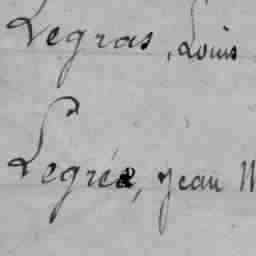 Legras, Louis
Legrée, Jean